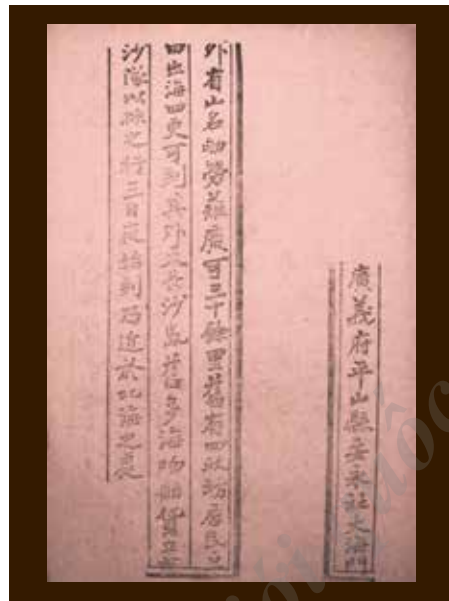 廣義府平山縣安永社大海門
外有山名劬勞羅廣可三十餘里舊有四政坊居民豆
田出海四更可到其外大長沙島舊多海物舶貨立
沙隊以採之行三日夜始到乃近於北海之處